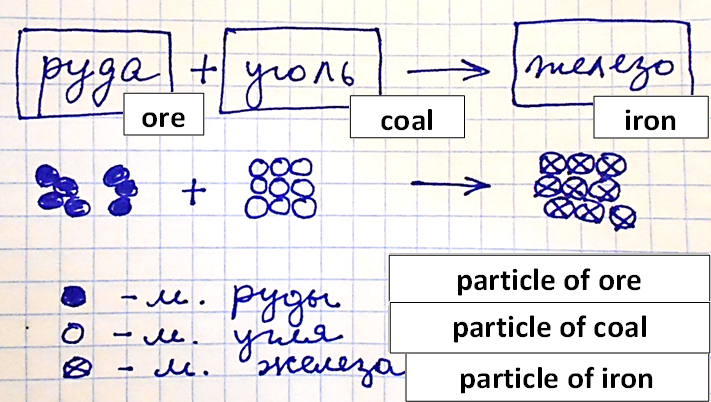 руда + уголь → железо
ore coal iron
+ →
- м. руды particle of ore
- м. угля particle of coal
- м. железа particle of iron